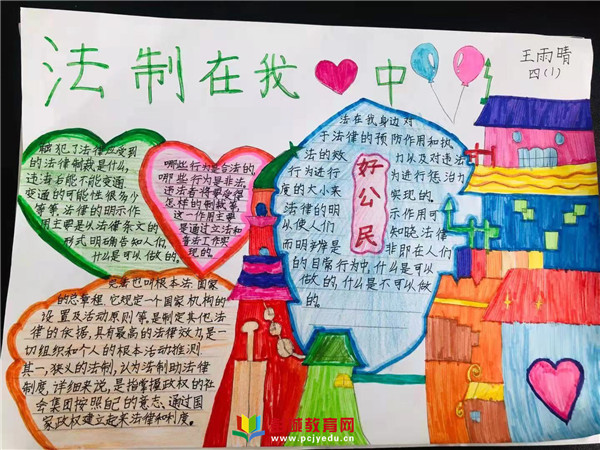 法制在我中
王雨晴
四(1)
触犯了法律应受到
的法律制裁是什么,
违法后能不能变通
变通的可能性很多少
等等。法律的明示作
用主要是以法律条文的
形式明确告知人们,
什么是可以做的。
哪些行为是合法的,
哪些行为是非法,
违法者将要受到
怎样的制裁等
这一作用主要
是通过立法和
普法工作实
现的。
法在我身边对
于法律的预防作用和执
法的效力以及对违法
行为进行为进行惩治力
度的大小来实现的。
法律的明示作用可
以使人们知晓法律
而明辨是非即在人们
的日常行为中,什么是可以
做的,什么是不可以做
的。
好公民
宪法也叫根本法,国家
的总章程,它规定一个国家机构的
设置及活动原则等,是制定其他法
律的依据,具有最高的法律效力,是一
切组织和个人的根本活动推测
其一,狭义的法制,认为法制助法律
制度,详细来说,是指掌握政权的社
会集团按照自己的意志、通过国
家政权建立起来法律和制度。
教育网
www.pcjyedu.cn